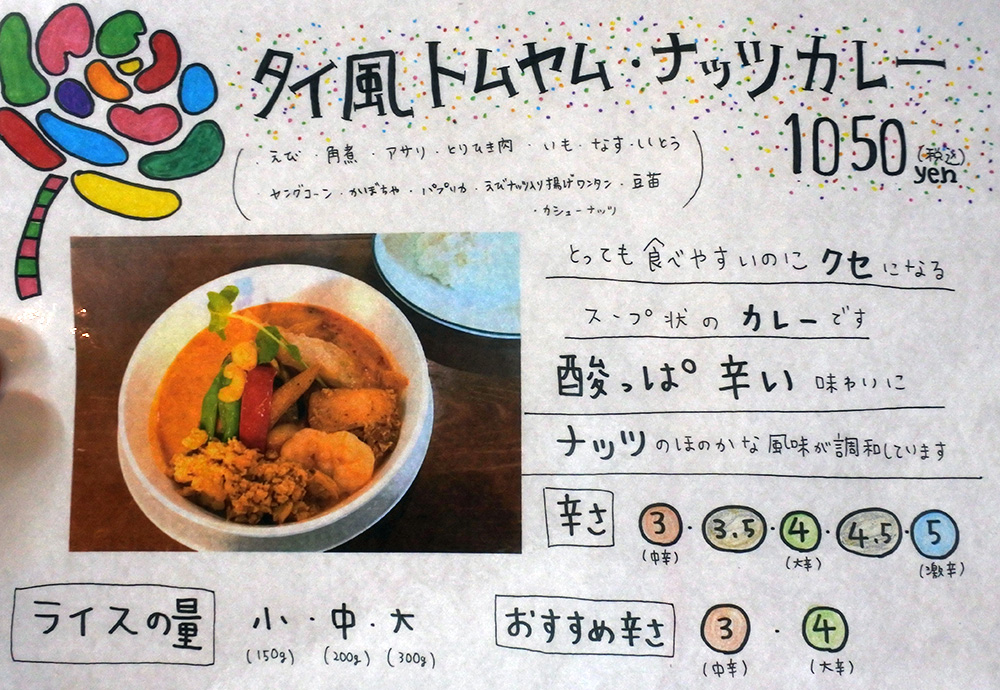 タイ風トムヤム・ナッツカレー
1050 (税込) yen
(・えび・角煮・アサリ・とりひき肉・いも・なす・ししとう
・ヤングコーン・かぼちゃ・パプリカ・えびナッツ入り揚げワンタン・豆苗
・カシューナッツ)
とっても食べやすいのにクセになる
スープ状のカレーです
酸っぱ辛い味わいに
ナッツのほのかな風味が調和しています
辛さ 3・3.5・4・4.5・5
(中辛) (大辛) (激辛)
ライスの量 小・中・大
(150g) (200g) (300g)
おすすめ辛さ 3・4
(中辛) (大辛)